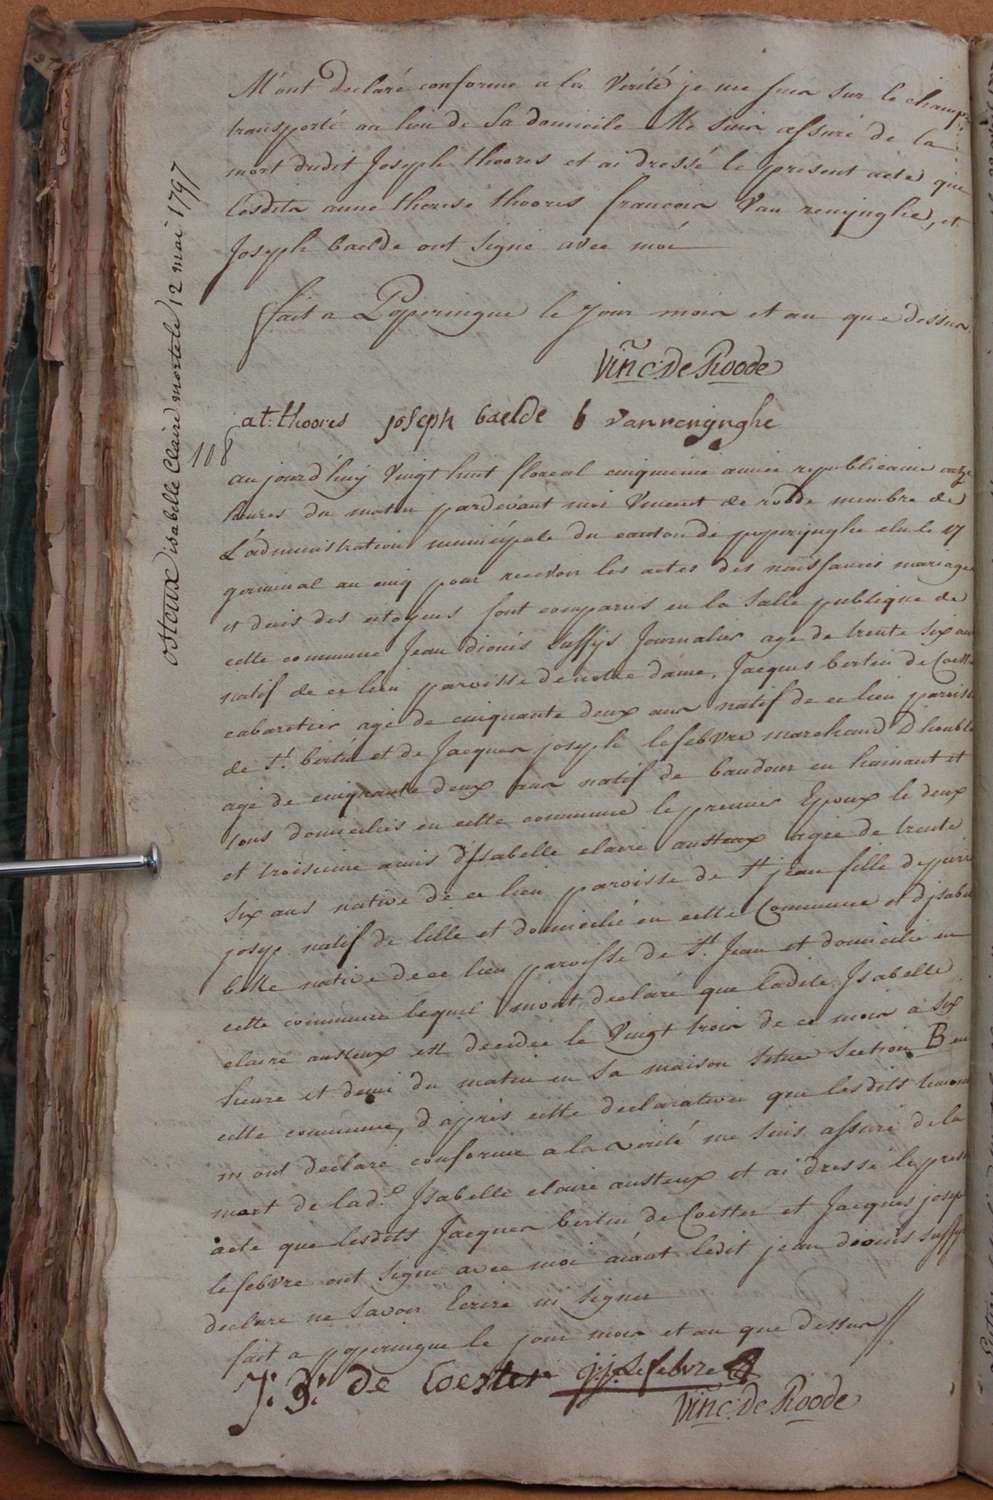 M'ont declaré conforme a la verité je me suis sur le champ
transporté au lieu de sa domicile Me suis assuré de la
mort dudit Joseph thoores et ai dressé le present acte que
lesdits anne therese thoores francois Van renijnghe, et
Joseph baelde ont signé avec moi
fait a Poperingue le jour mois et an que dessus
Vinc: De Roode
at: thoores joseph baelde b vanrenijnghe
ostoux isabelle Claire morte le 12 mai 1797
108
aujourd'huy vingt huit floreal cinquieme année republicaine onze
heures du matin pardevant moi Vincent de roode membre de
L'administration municipale du canton de poperijnghe elu le 17
germinal an cinq pour recevoir les actes des naissances mariages
et deces des citoyens sont comparus en la salle publique de
cette commune Jean dionis suffys Journalier age de trente six ans
natif de ce lieu paroisse de notre dame, Jacques bertin de Coester
cabaretier agé de cinquante deux ans natif de ce lieu paroisse
de St. bertin et de Jacques joseph lefebvre marchand D'houblon
agé de cinquante deux ans natif de baudour en hainaut et
tous domiciliés en cette commune le premier Epoux le deux
et troisieme amis d'Isabelle claire austeux agée de trente
six ans native de ce lieu paroisse de St jean fille de pierre
josep. natif de lille et domicilié en cette Commune et d'isabelle
belle native de ce lieu paroisse de St. Jean et domicilié en
cette commune lequel m'ont declaré que ladite Isabelle
claire austeux est decedée le Vingt trois de ce mois a six
heure et demi du matin en sa maison située section B en
cette commune, d'après cette declaration que lesdits temoins
m'ont declaré conforme a la verité me suis assuré de la
mort de lad.e Isabelle claire austeux et ai dressé le present
acte que lesdits Jacques bertin de Coester et Jacques joseph
lefebvre ont signé avec moi aiant ledit jean dionis suffys
declare ne savoir Ecrire ni signer
fait a poperingue le jour mois et an que dessus //
J: B: de Coester j:j: Lefebvre
Vinc: De Roode